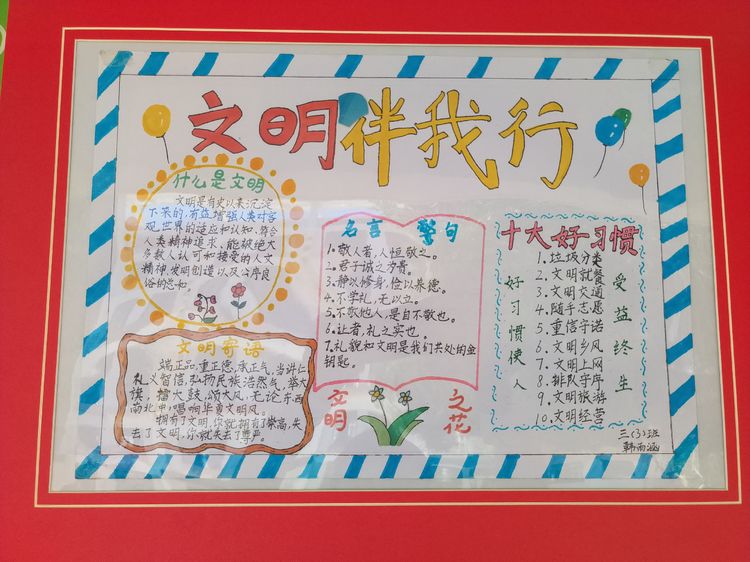 文明伴我行
什么是文明
文明是有史以来沉淀
下来的,有益增强人类对客
观世界的适应和认知、符合
人类精神追求、能被绝大
多数人认可和接受的人文
精神,发明创造以及公序良
俗的总和。
文明寄语
端正品,重正德,承正气,当讲仁
礼义智信,弘扬民族浩然气,举大
旗,擂大鼓,颂大风,无论东西
南北中,唱响华夏文明风。
拥有了文明,你就拥有了崇高,失
去了文明,你就失去了尊严。
名言 警句
1.敬人者,人恒敬之。
2.君子诚之为贵。
3.静以修身,俭以养德。
4.不学礼,无以立。
5.不敬他人,是自不敬也。
6.让者,礼之实也。
7.礼貌和文明是我们共处的金
钥匙。
文明
之花
十大好习惯
好习惯使人
1.垃圾分类
2.文明就餐
3.文明交通
4.随手志愿
5.重信守诺
6.文明乡风
7.文明上网
8.排队守序
9.文明旅游
10.文明经营
受益终生
三(3)班
韩雨涵